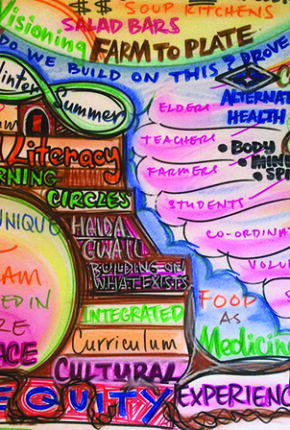 $$ SOUP KITCHENS
Visioning
SALAD BARS
FARM TO PLATE
DO WE BUILD ON THIS? PROVE
Winter Summer
ELDERS
TEACHERS
FARMERS
STUDENTS
CO-ORDINAT
VOLU
ALTERNAT
HEALTH
• BODY
• MIND
• SPI
Literacy
RNING
CIRCLES
UNIQUE
HAIDA
GWAII
BUILDING ON
WHAT EXISTS
AM
ED IN
RE
ACE
INTEGRATED
Curriculum
CULTURAL
FOOD
AS
Medicine
EQUITY EXPERIENC